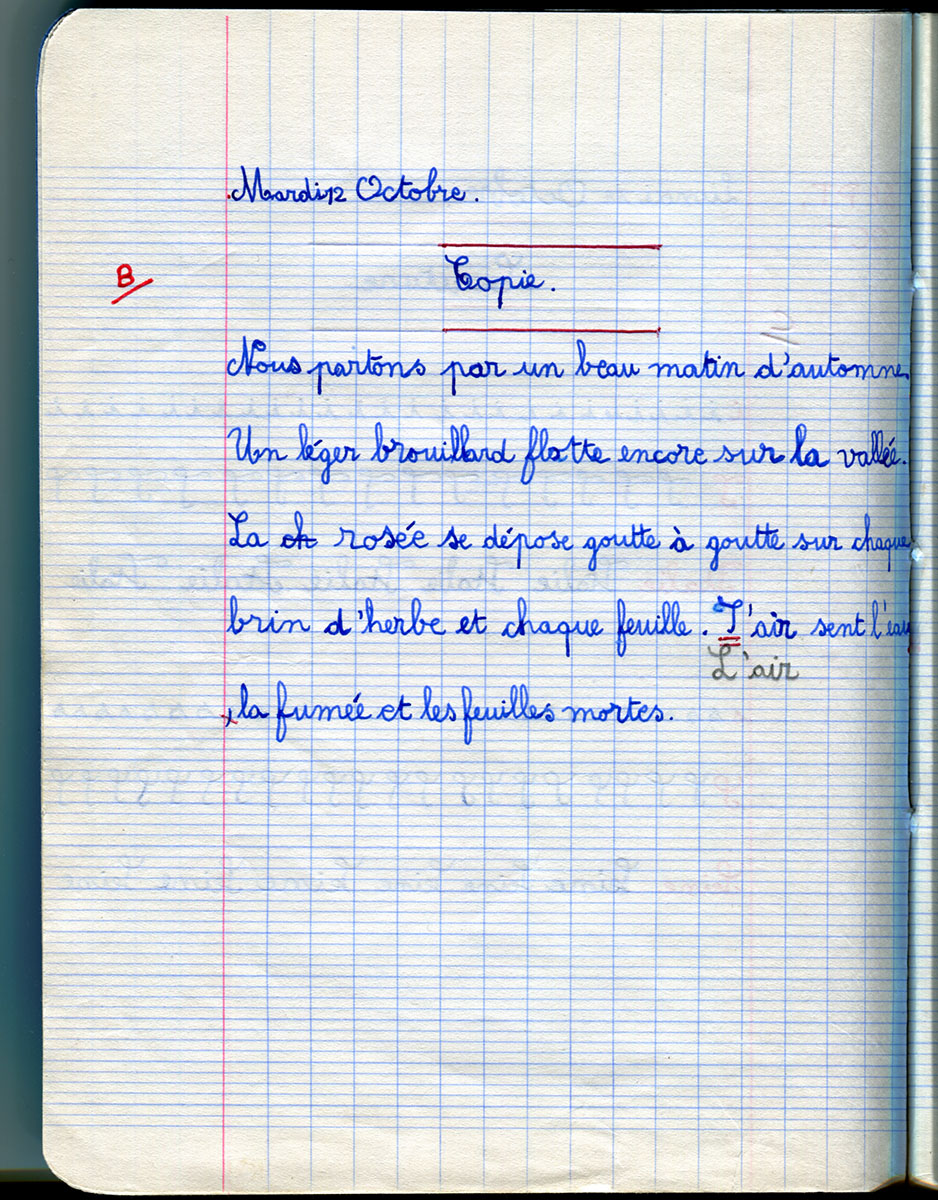 Mardi 12 Octobre.
B
Copie.
Nous partons par un beau matin d'automne.
Un léger brouillard flotte encore sur la vallée.
La ch rosée se dépose goutte à goutte sur chaque
brin d'herbe et chaque feuille. J'air sent l'eau
L'air
, la fumée et les feuilles mortes.